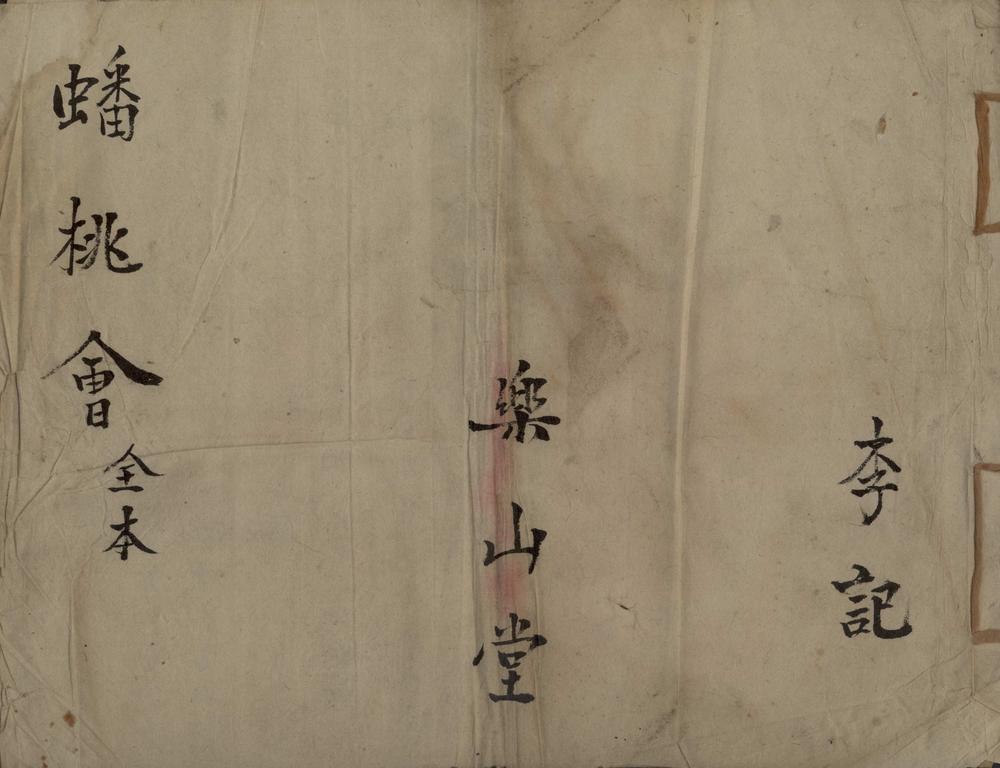 李記
樂山堂
蟠桃會全本